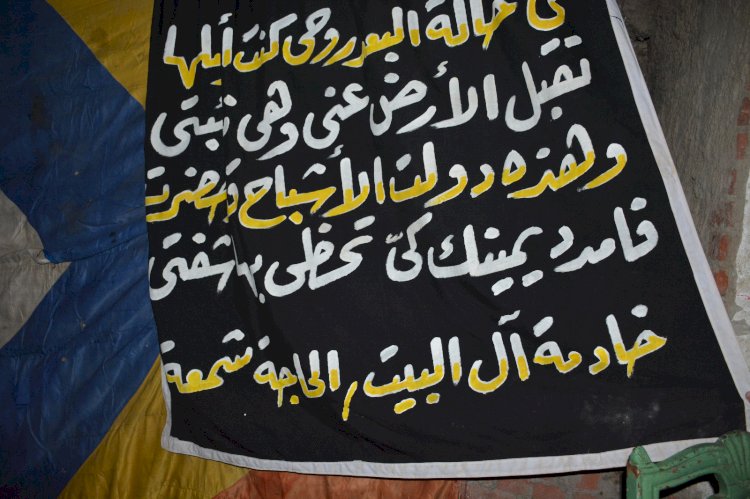 في حالة البعد روحى كنت أرسلها
تقبل الأرض عنى وهى نئبتى
وهذه دولت الأشباح قد حضرت
فامدد يمينك كىّ تحظى بها شفتى
خادمة آل البيت / الحاجة شمعة